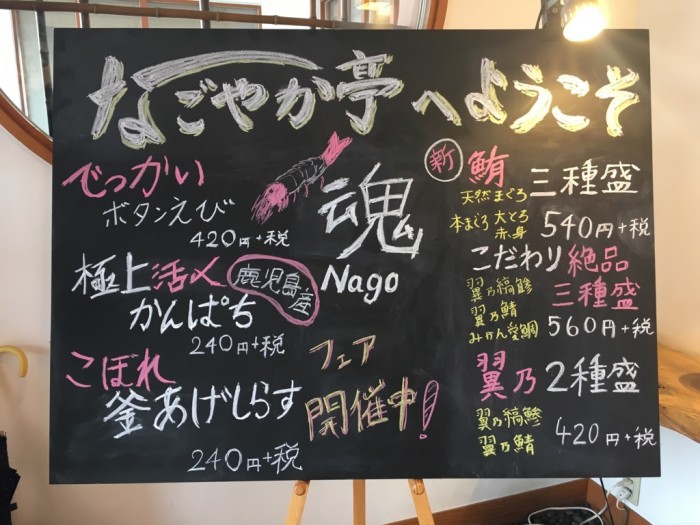 なごやか亭へようこそ
でっかい
ボタンえび
420円+税
極上活〆
鹿児島産
かんぱち
240円+税
こぼれ
釜あげしらす
240円+税
魂
Nago
フェア
開催中!
新
鮪
三種盛
天然まぐろ
本まぐろ 大とろ
赤身
540円+税
こだわり絶品
三種盛
翼乃縞鯵
翼乃鯖
みかん愛鯛
560円+税
翼乃 2種盛
翼乃縞鯵
翼乃鯖
420円+税